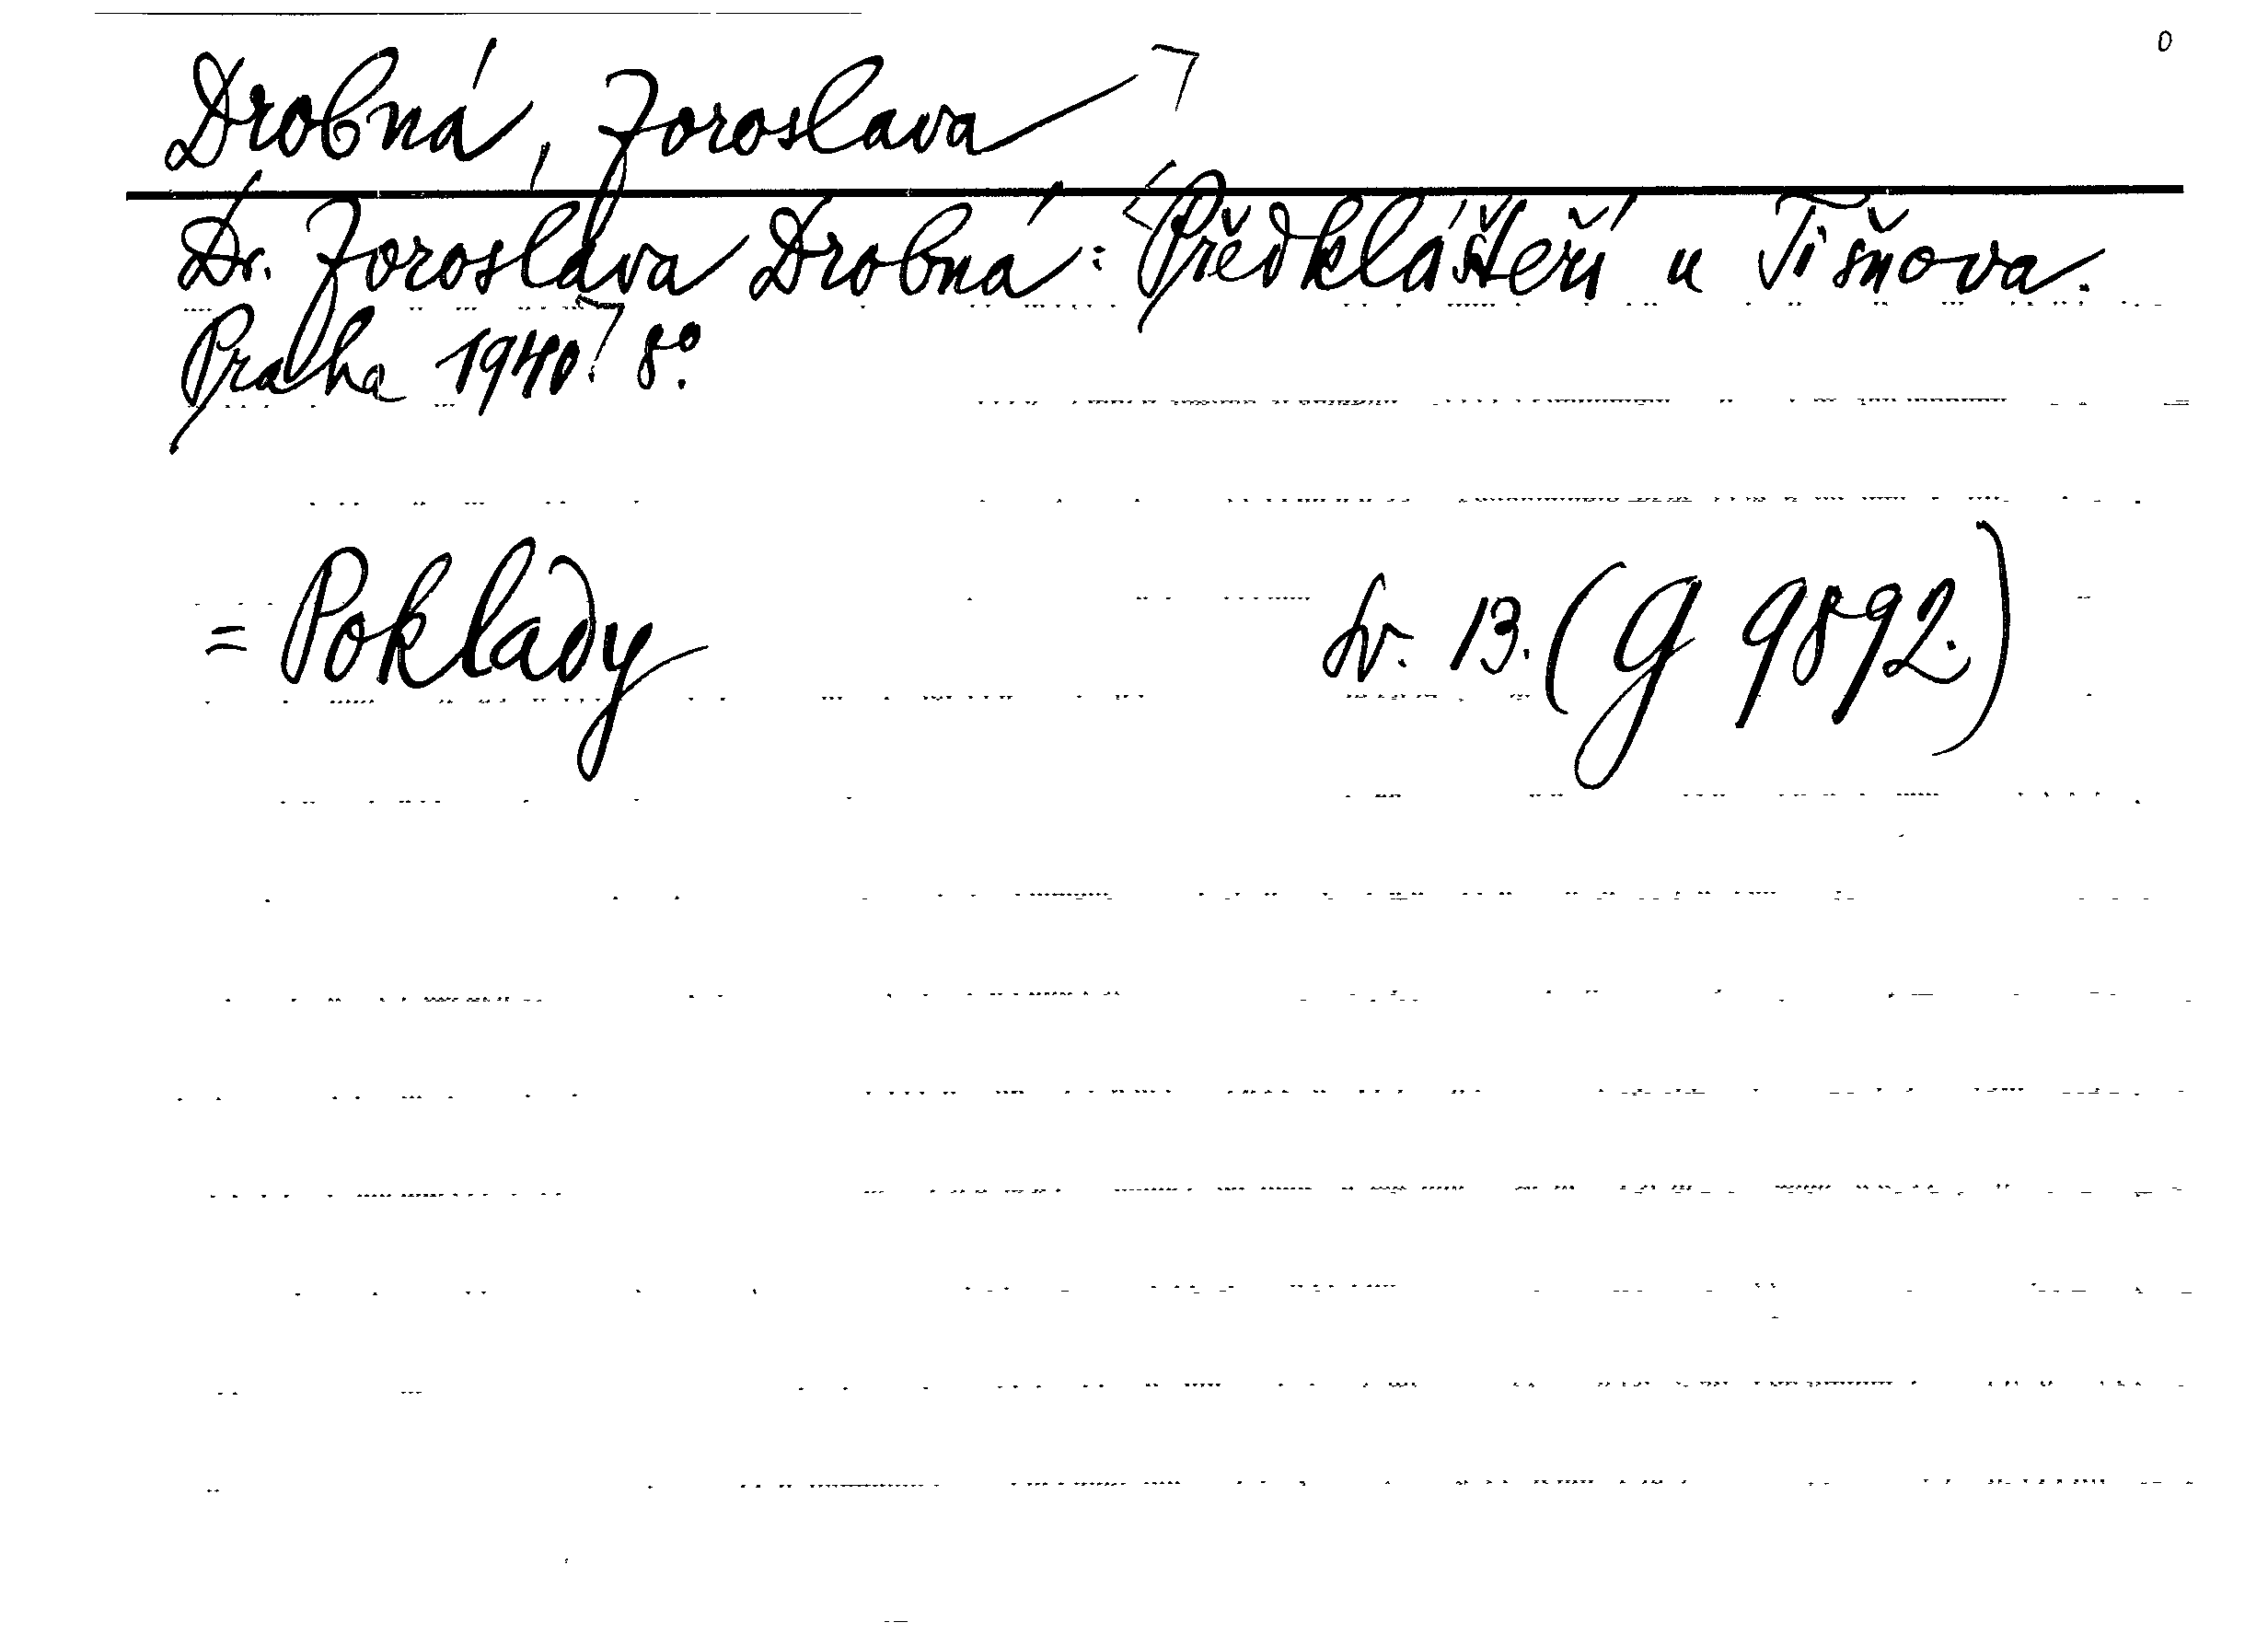 Drobná, Zoroslava
Dr. Zoroslava Drobná: Předklášteří u Tišňova.
Praha 1940. 8°.
= Poklady sv. 13. (G 9892.)